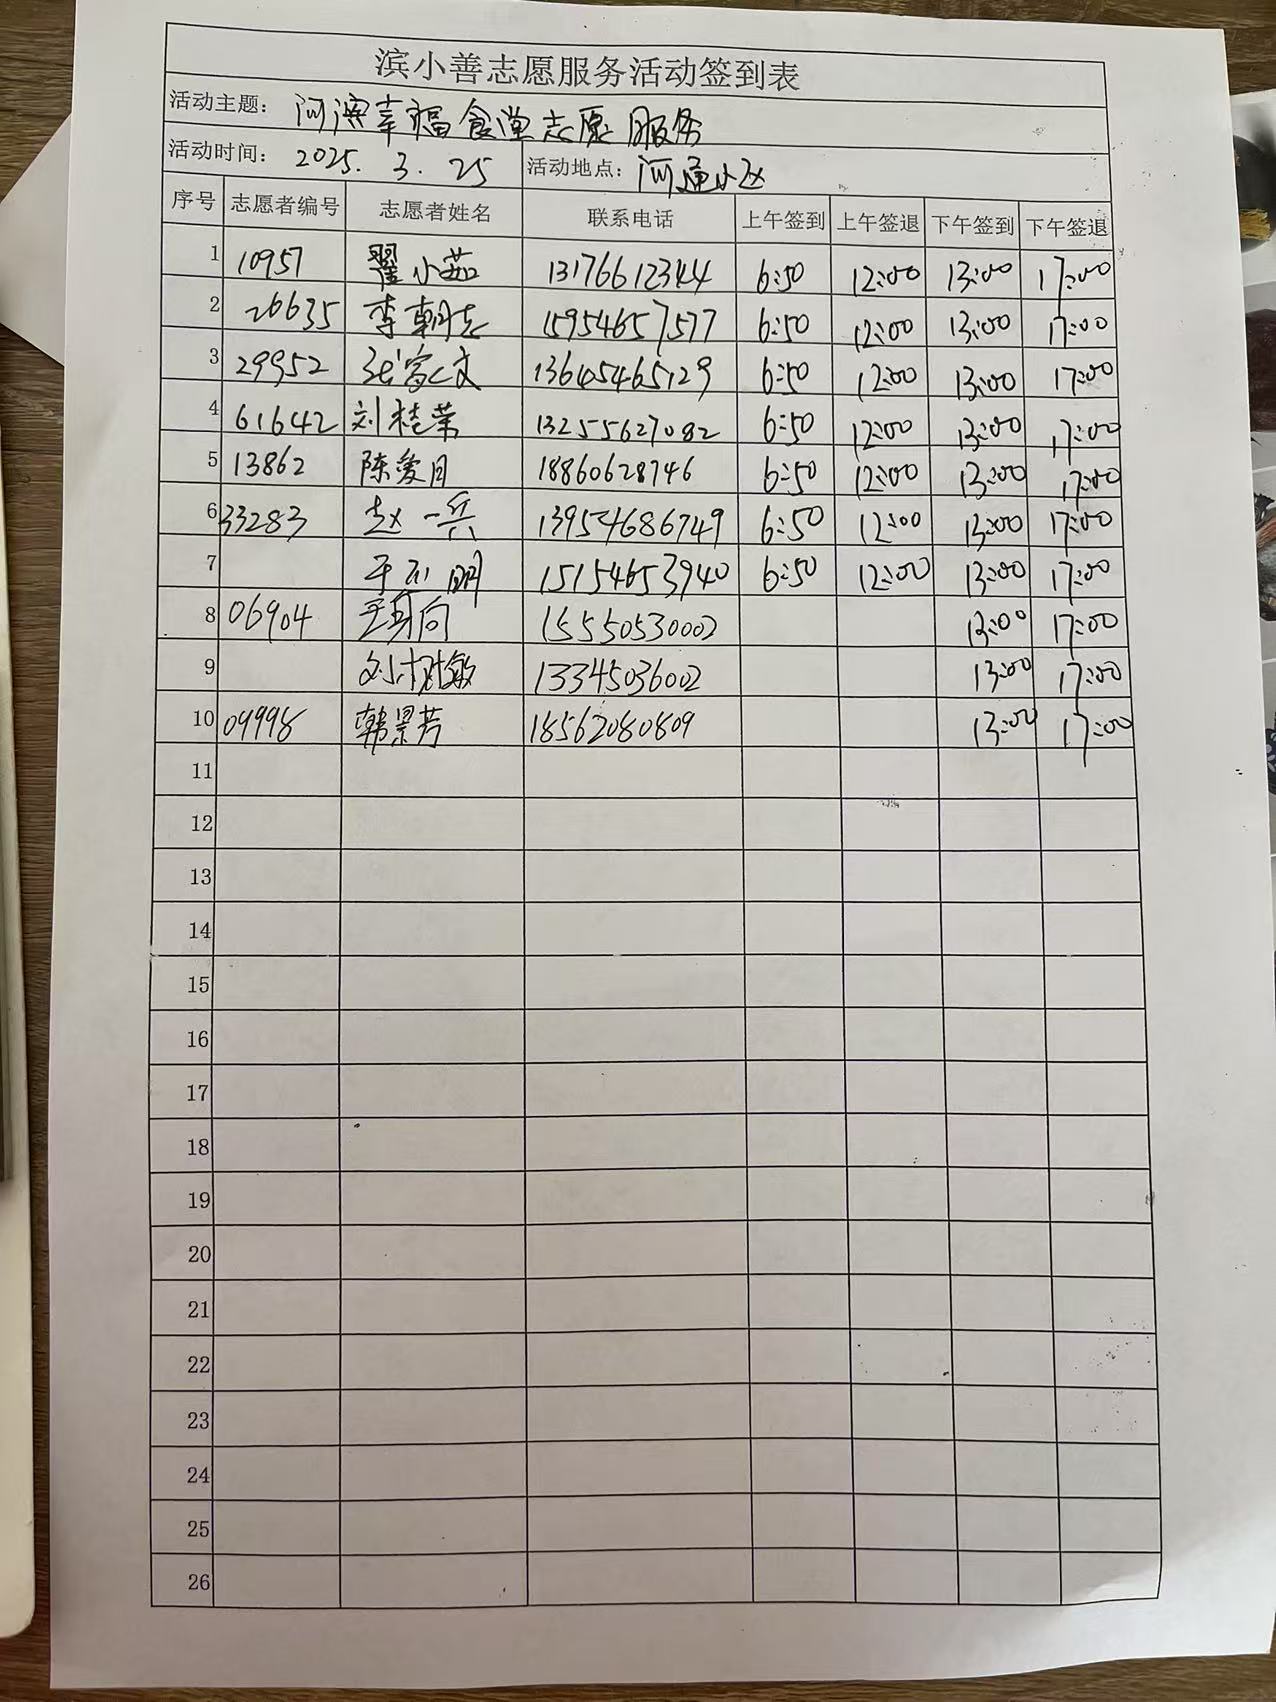 滨小善志愿服务活动签到表
活动主题: 河滨幸福食堂志愿服务
活动时间: 2025.3.25 活动地点: 河通小区
序号 志愿者编号 志愿者姓名 联系电话 上午签到 上午签退 下午签到 下午签退
1 10957 翟小茹 13176612344 6:50 12:00 13:00 17:00
2 26635 李朝志 15954657577 6:50 12:00 13:00 17:00
3 29952 张富文 13645465129 6:50 12:00 13:00 17:00
4 61642 刘桂荣 13255627082 6:50 12:00 13:00 17:00
5 13862 陈爱月 18860628746 6:50 12:00 13:00 17:00
6 33283 赵一兵 13954686749 6:50 12:00 13:00 17:00
7 15154653940 6:50 12:00 13:00 17:00
8 06904 15550530002 13:00 17:00
9 刘树敏 13345036002 13:00 17:00
10 09998 韩景芳 18562080809 13:00 17:00
11
12
13
14
15
16
17
18
19
20
21
22
23
24
25
26